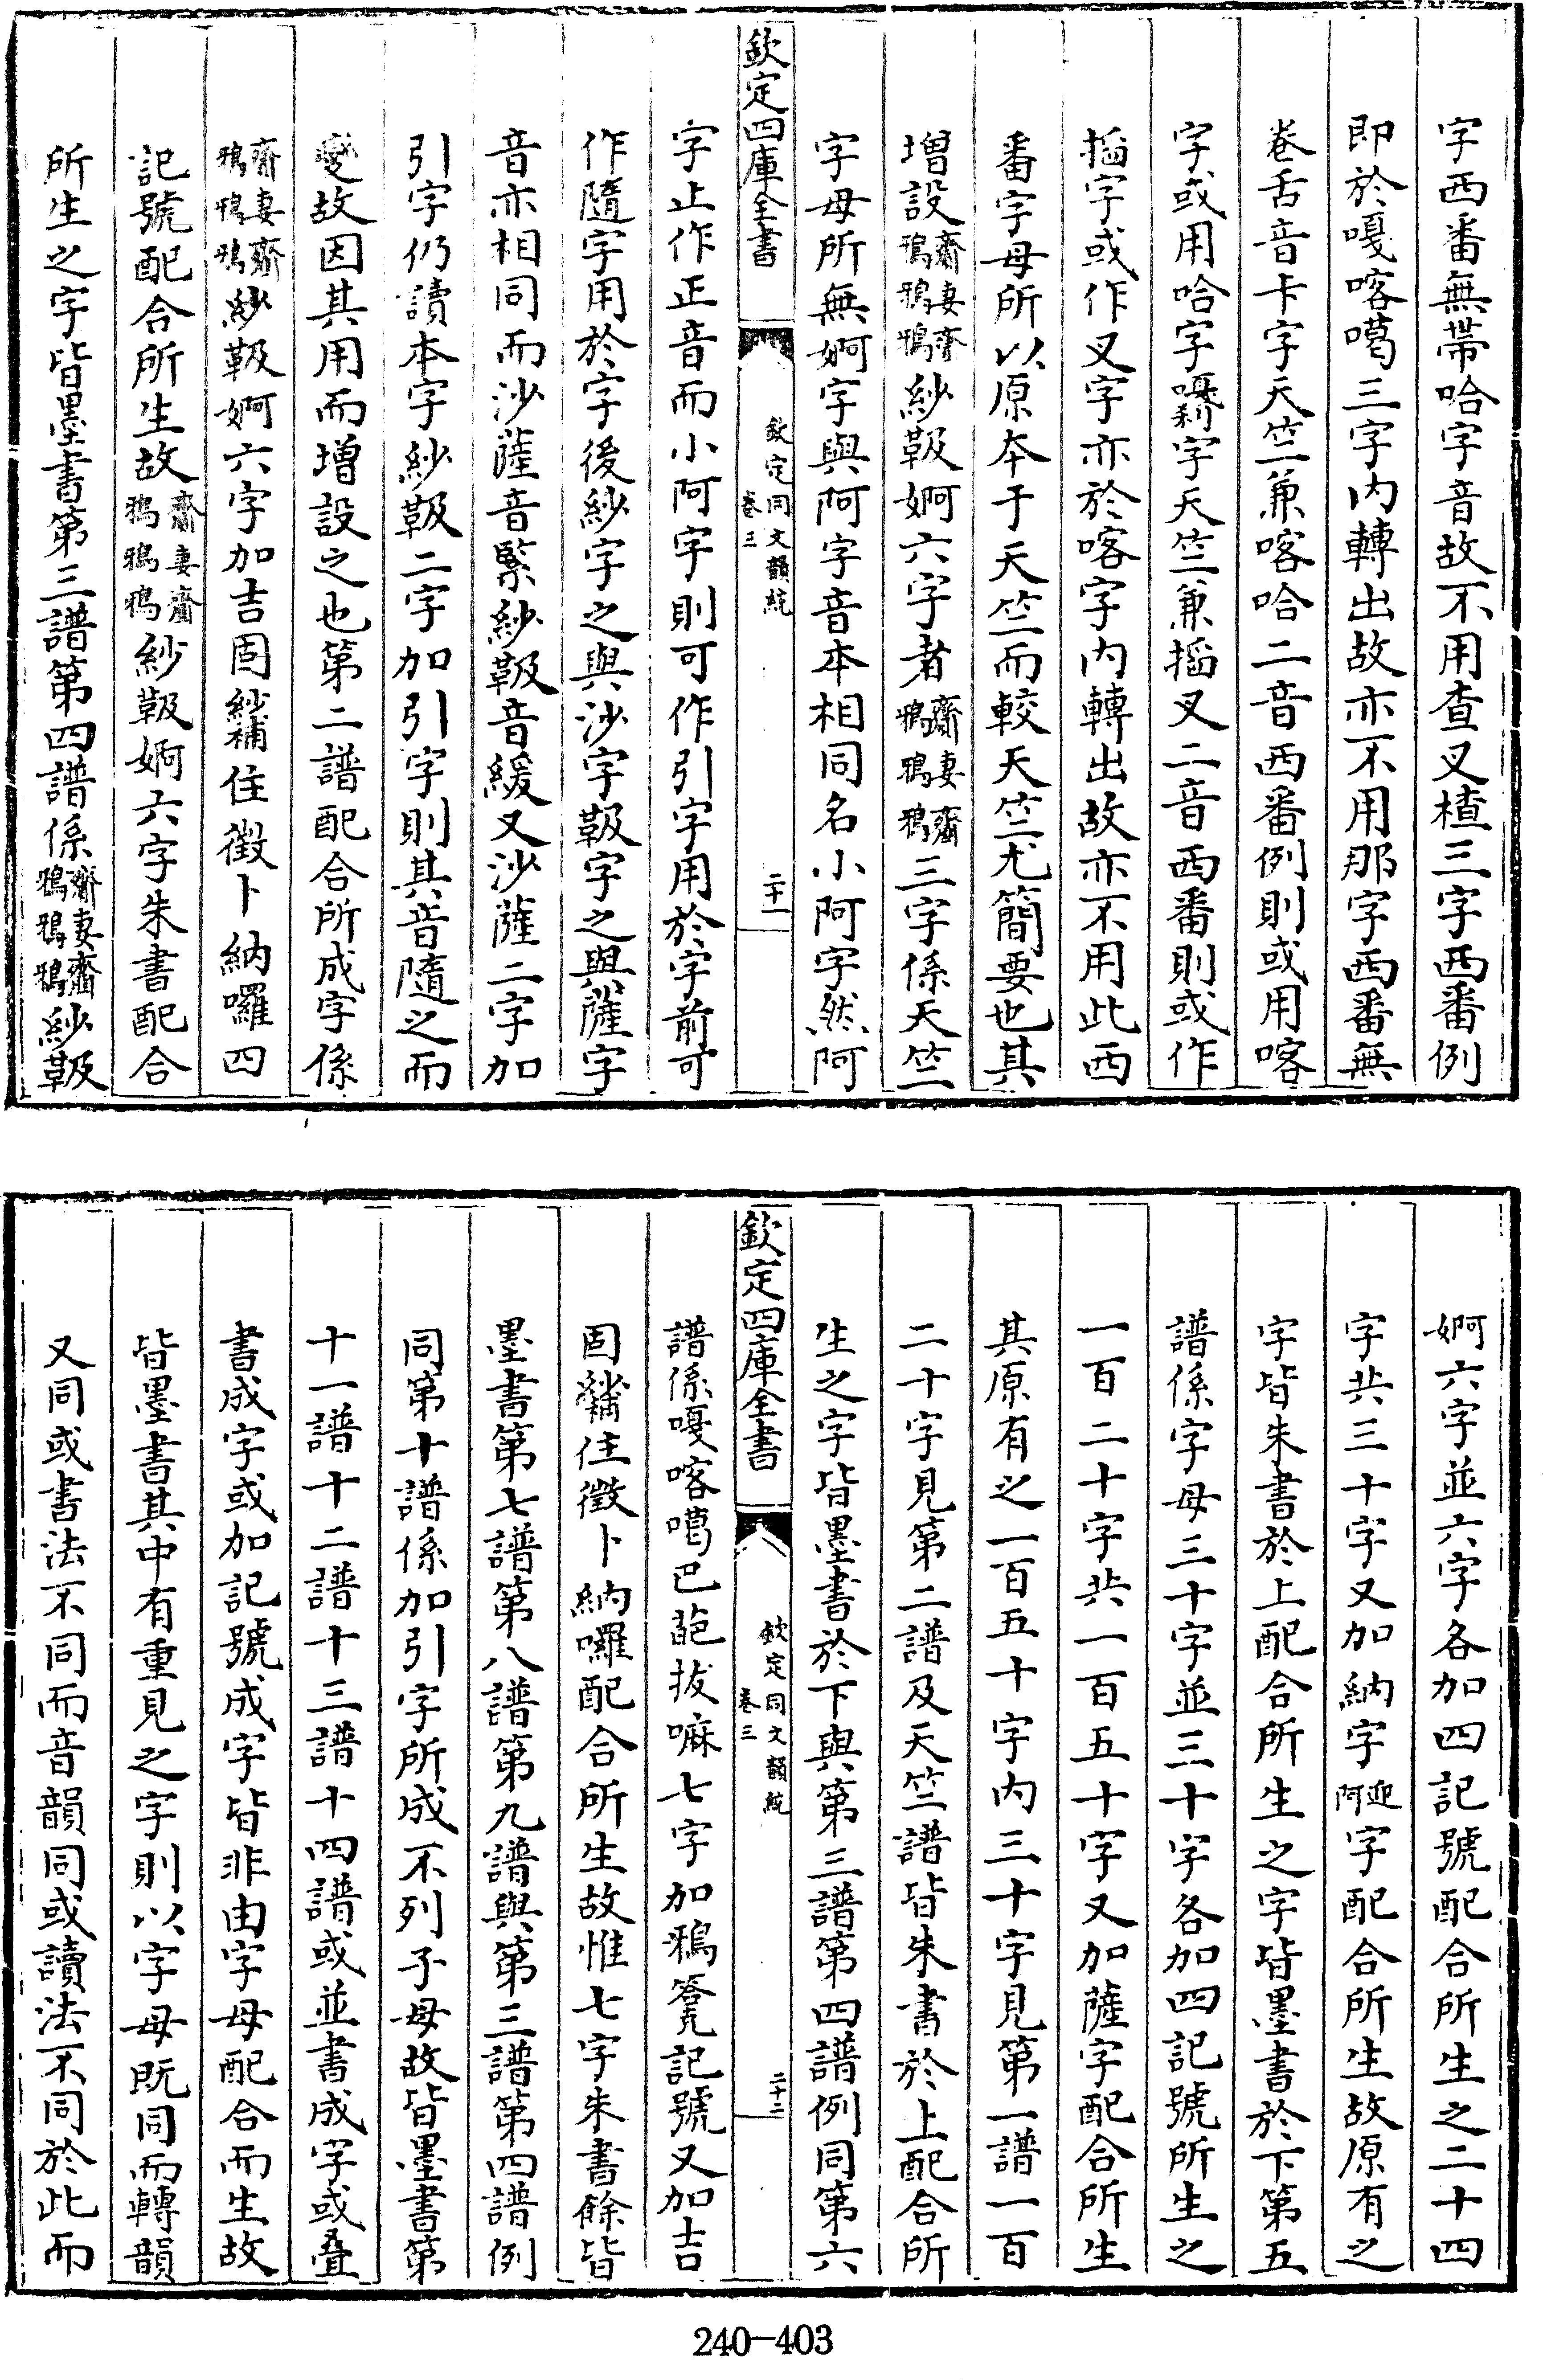 字西番無帶哈字音故不用查叉楂三字西番例
即於嘎喀噶三字内轉出故亦不用那字西番無
卷舌音卡字天竺兼喀哈二音西番例則或用喀
字或用哈字字天竺兼搐叉二音西番則或作
搐字或作叉字亦於喀字内轉出故亦不用此西
番字母所以原本于天竺而較天竺尤簡要也其
增設齋鴉妻鴉齋鴉紗靸婀六字者齋鴉妻鴉齋鴉三字係天竺
字母所無婀字與阿字音本相同名小阿字然阿
欽定四庫全書
欽定同文韻統
卷三
二十一
字止作正音而小阿字則可作引字用於字前可
作隨字用於字後紗字之與沙字靸字之與薩字
音亦相同而沙薩音緊紗靸音緩又沙薩二字加
引字仍讀本字紗靸二字加引字則其音隨之而
變故因其用而增設之也第二譜配合所成字係
齋鴉妻鴉齋鴉紗靸婀六字加吉固紗補住徵卜納囉四
記號配合所生故齋鴉妻鴉齋鴉紗靸婀六字朱書配合
所生之字皆墨書第三譜第四譜係齋鴉妻鴉齋鴉紗靸
婀六字並六字各加四記號配合所生之二十四
字共三十字又加納字迎阿字配合所生故原有之
字皆朱書於上配合所生之字皆墨書於下第五
譜係字母三十字並三十字各加四記號所生之
一百二十字共一百五十字又加薩字配合所生
其原有之一百五十字内三十字見第一譜一百
二十字見第二譜及天竺譜皆朱書於上配合所
生之字皆墨書於下與第三譜第四譜例同第六
欽定四庫全書
欽定同文韻統
卷三
二十二
譜係嘎喀噶巴葩拔嘛七字加鴉答記號又加吉
固紗補住徵卜納囉配合所生故惟七字朱書餘皆
墨書第七譜第八譜第九譜與第三譜第四譜例
同第十譜係加引字所成不列子母故皆墨書第
十一譜十二譜十三譜十四譜或並書成字或叠
書成字或加記號成字皆非由字母配合而生故
皆墨書其中有重見之字則以字母既同而轉韻
又同或書法不同而音韻同或讀法不同於此而
240-403